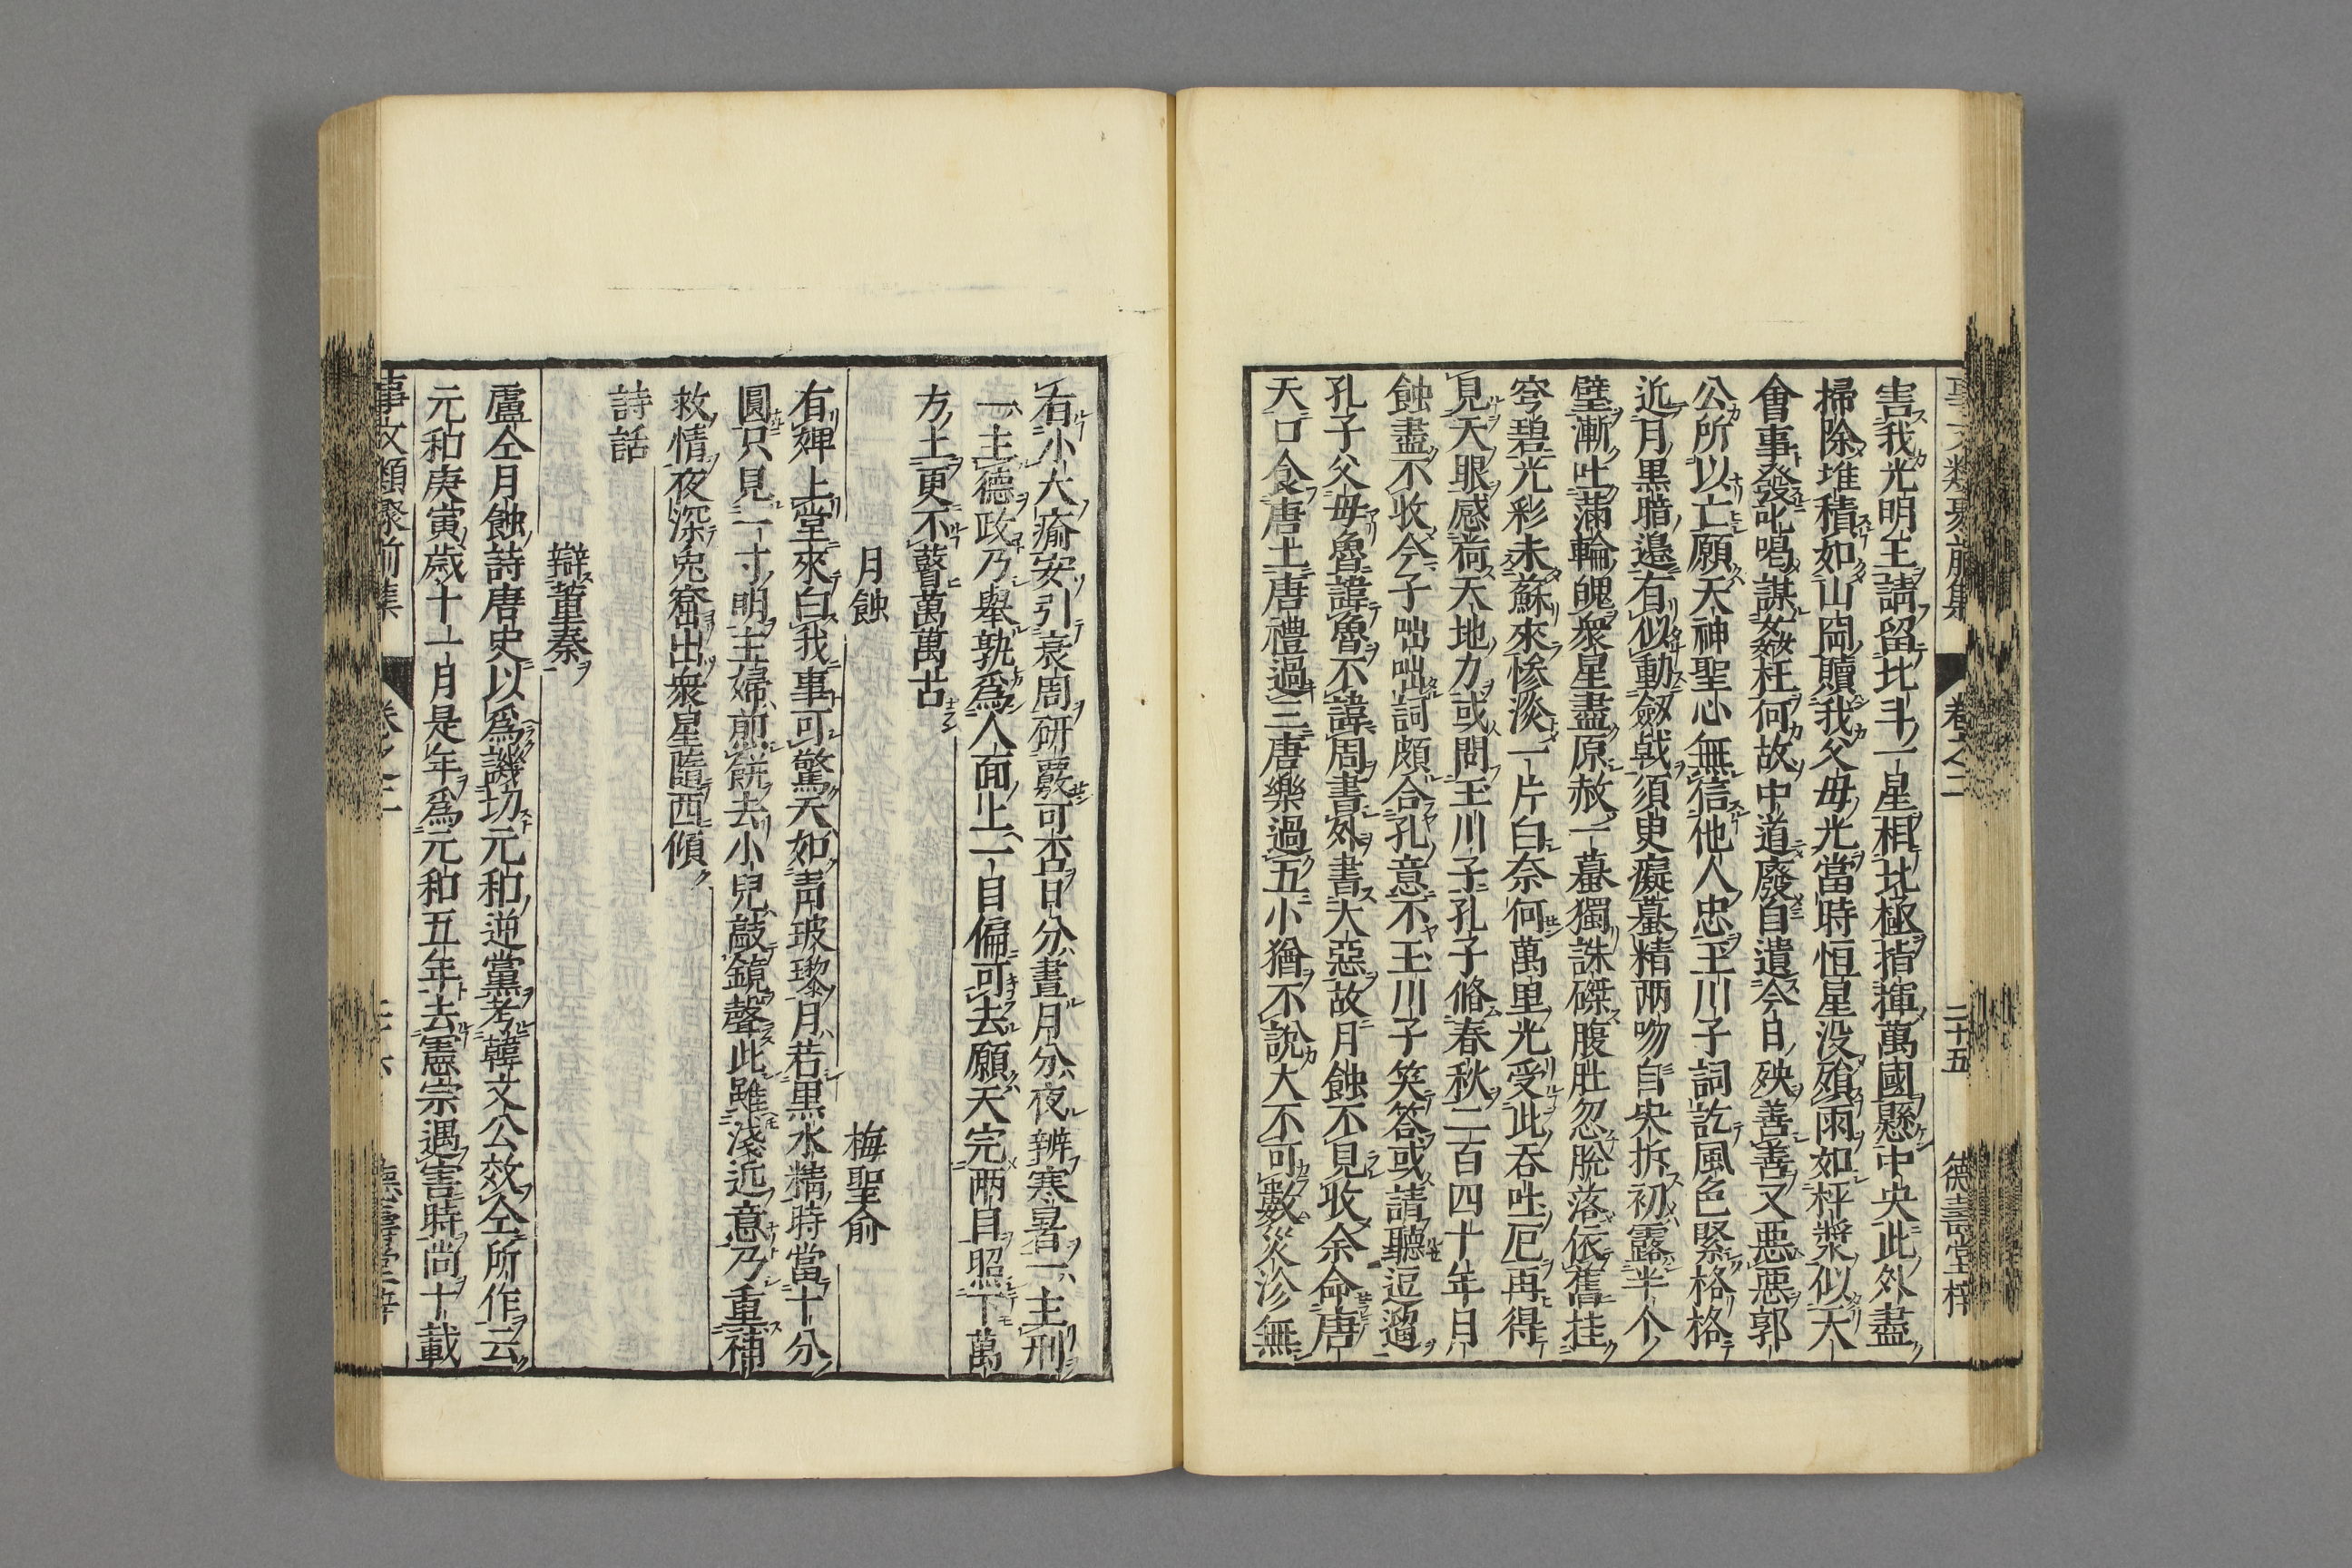 事文類聚前集 卷之二 二十五 德壽堂梓
害我光明王請留北斗一星相北極指揮萬國懸中央此外盡
掃除堆積如山岡贖我父母光當時恒星没殞雨如枰漿似天
會事發叱喝誅姦枉何故中道廢自遺今日殃善善又惡惡郭
公所以亡願天神聖心無信他人忠玉川子詞訖風色緊格格
近月黒暗邉有似動劔戟須臾癡蟇精两吻自决拆初露半个
璧漸吐滿輪魄衆星盡原赦一蟇獨誅磔腹肚忽脫落依舊挂
穹碧光彩未蘇來慘淡一片白奈何萬里光受此吞吐厄再得
見天眼感荷天地力或問玉川子孔子脩春秋二百四十年月
蝕盡不收今子咄咄詞頗合孔意不玉川子笑答或請聽逗遛
孔子父母魯諱魯不諱周書外書大惡故月蝕不見收余命唐
天口食唐土唐禮過三唐樂過五小猶不說大不可數災沴無
有小大瘉安引衰周研覈可否日分晝月分夜辨寒暑一主刑
一主德政乃舉孰爲人面上一目偏可去願天完两目照下萬
方士更不瞽萬萬古
月蝕 梅聖俞
有婢上堂來白我事可驚天如青玻瓈月若黒水精時當十分
圓只見一寸明主婦煎餅去小兒敲鏡聲此雖淺近意乃重補
救情夜深兎窟出衆星隨西傾
詩話
辯董秦
盧仝月蝕詩唐史以爲譏切元和逆黨考韓文公效仝所作云
元和庚寅歳十一月是年爲元和五年去憲宗遇害時尚十載
事文類聚前集 卷之二 德壽堂梓